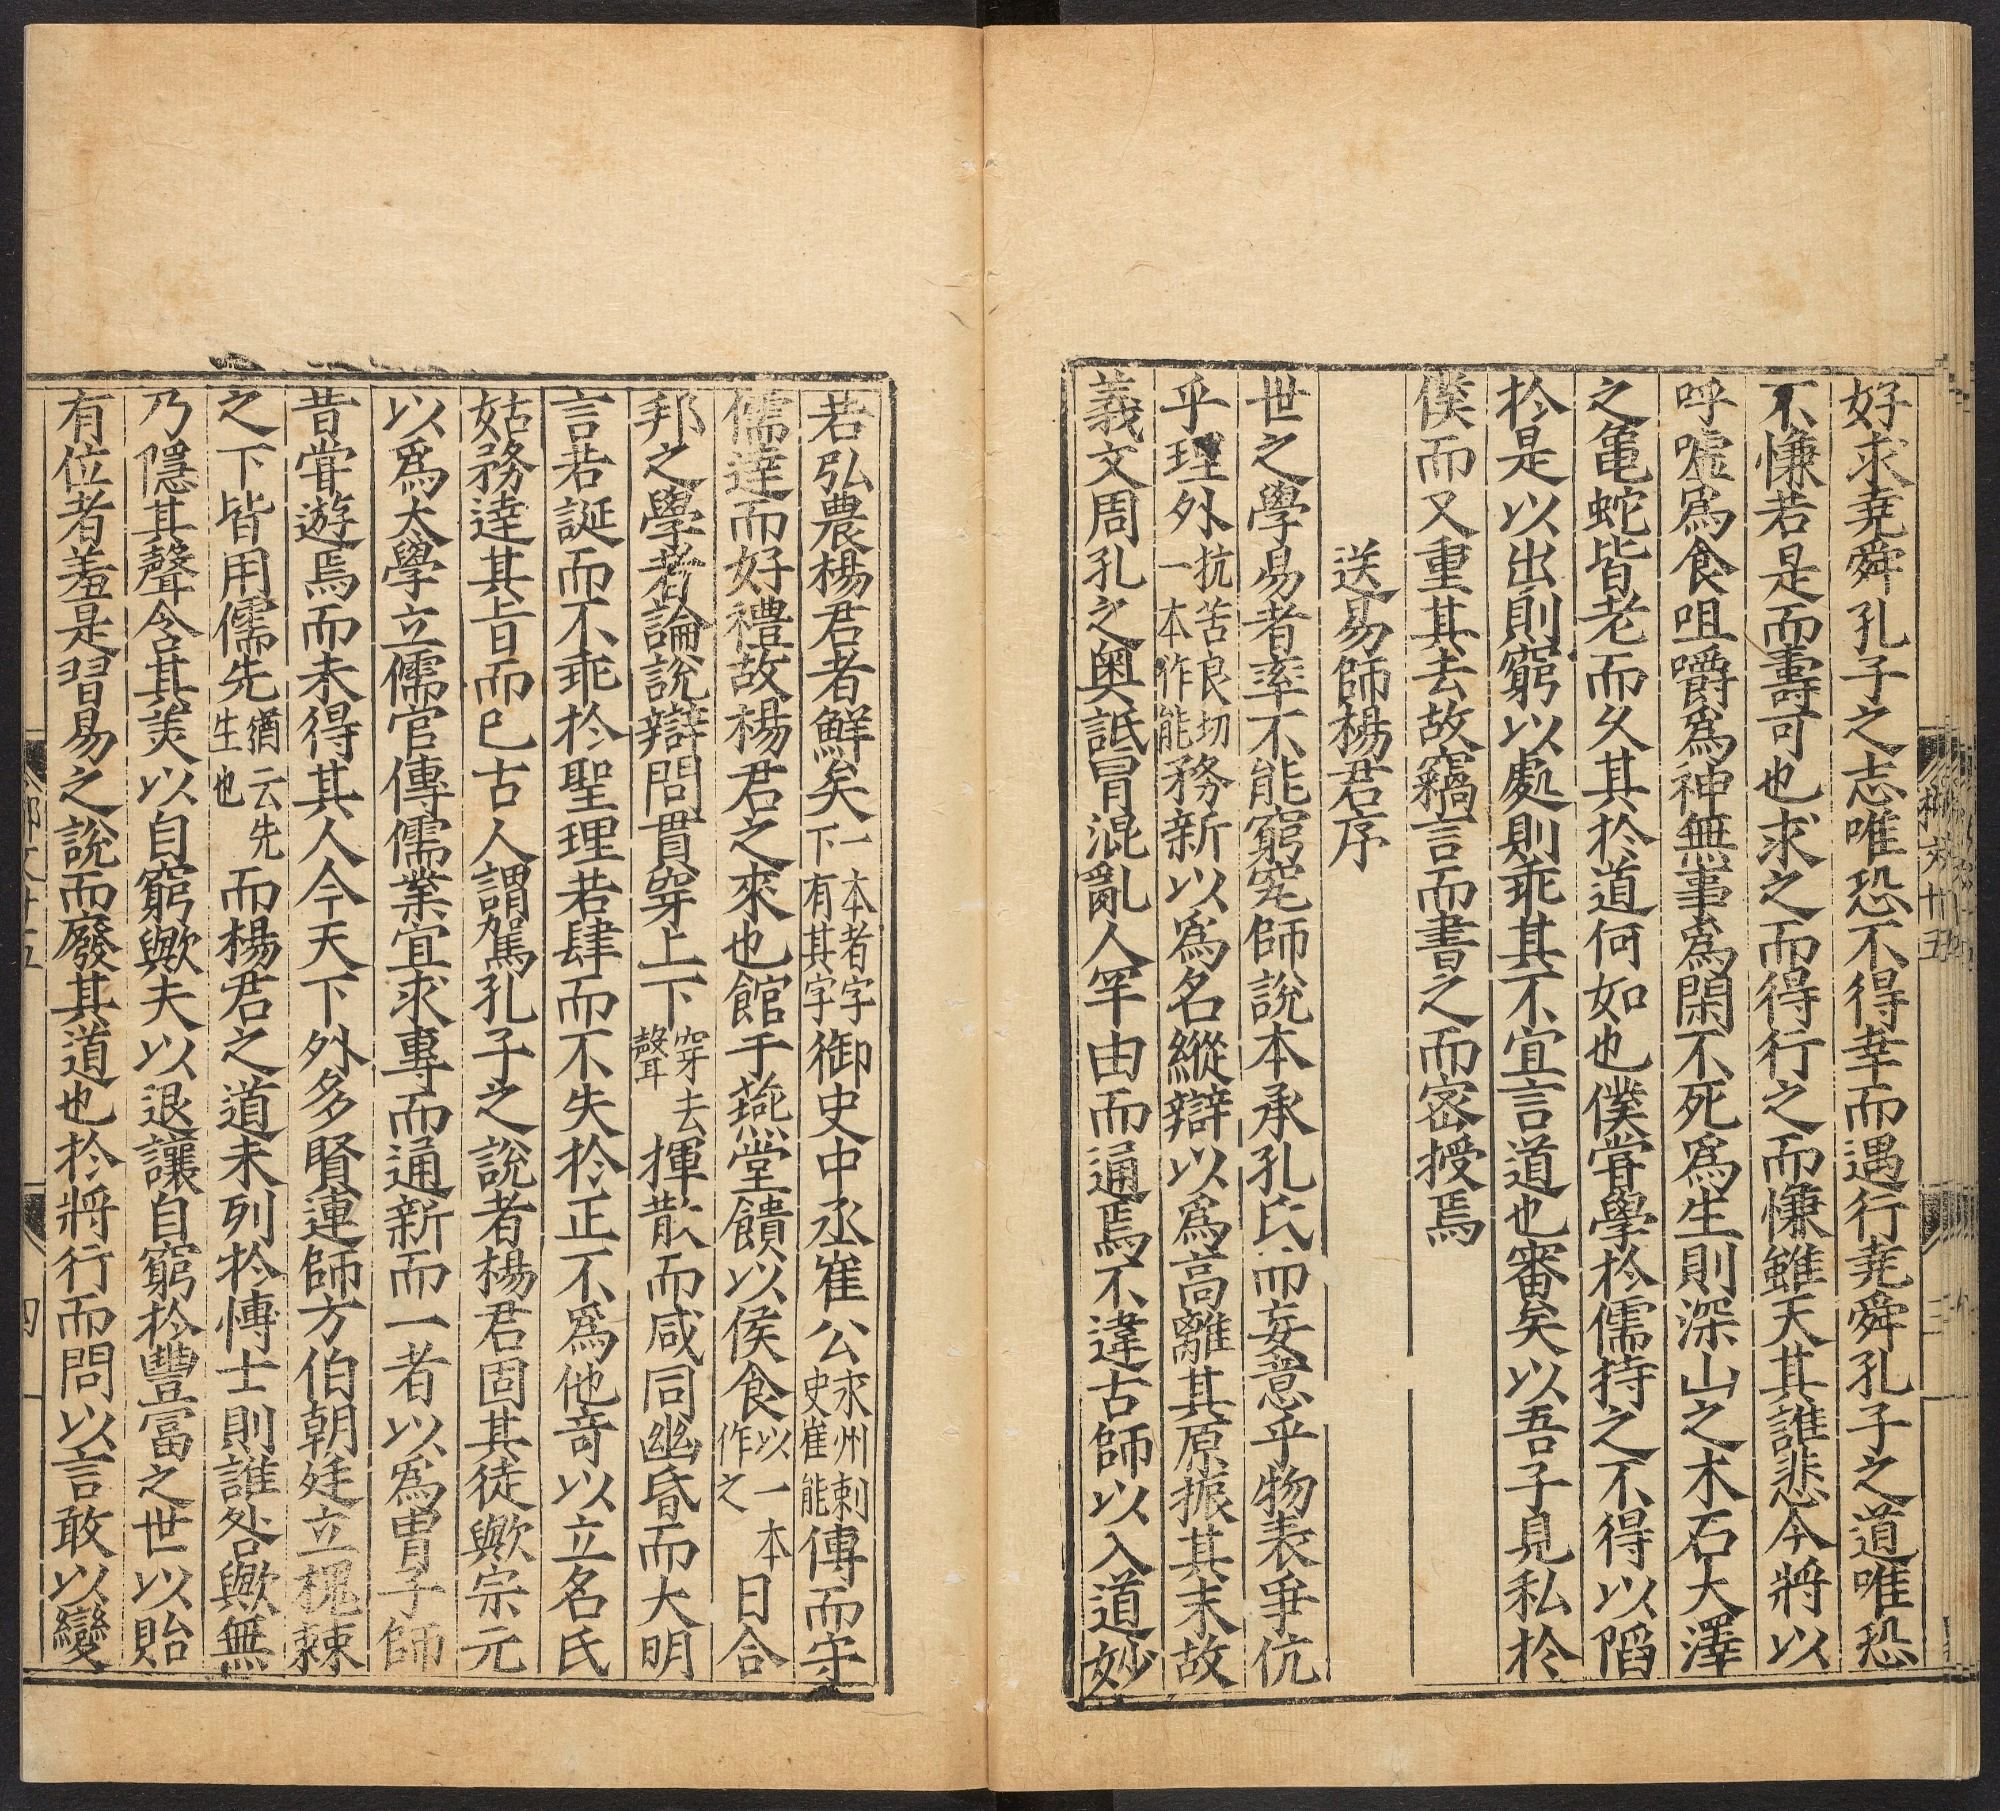 好求堯舜孔子之志唯恐不得幸而遇行堯舜孔子之道唯恐
不慊若是而壽可也求之而得行之而慊雖夭其誰悲今將以
呼嘘爲食咀嚼爲神無事爲閑不死爲生則深山之木石大澤
之龜蛇皆老而久其於道何如也僕甞學於儒持之不得以陷
於是以出則窮以處則乖其不宜言道也審矣以吾子見私於
僕而又重其去故竊言而書之而密授焉
送易師楊君序
世之學易者率不能窮究師說本承孔氏而妄意乎物表爭伉
乎理外抗苦良切一本作能務新以爲名縱辯以爲高離其原振其末故
羲文周孔之奥詆冒混亂人罕由而通焉不違古師以入道妙
若弘農楊君者鮮矣一本者字下有其字御史中丞崔公永州刺史崔能傳而守
儒達而好禮故楊君之來也館于燕堂饋以侯食以一本作之日合
邦之學者論說辯問貫穿上下穿去聲揮散而咸同幽昏而大明
言若誕而不乖於聖理若肆而不失於正不爲他奇以立名氏
姑務達其旨而已古人謂駕孔子之說者楊君固其徒歟宗元
以爲太學立儒官傳儒業宜求專而通新而一者以爲胄子師
昔甞遊焉而未得其人今天下外多賢連師方伯朝廷立槐棘
之下皆用儒先猶云先生也而楊君之道未列於博士則誰咎歟無
乃隱其聲含其美以自窮歟夫以退讓自窮於豐富之世以貽
有位者羞是習易之說而廢其道也於將行而問以言敢以變